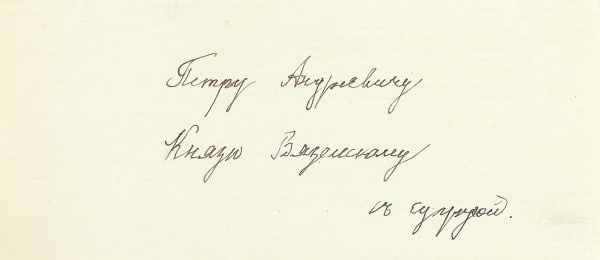 Петру Андреевичу
Князю Вяземскому
съ супругой.